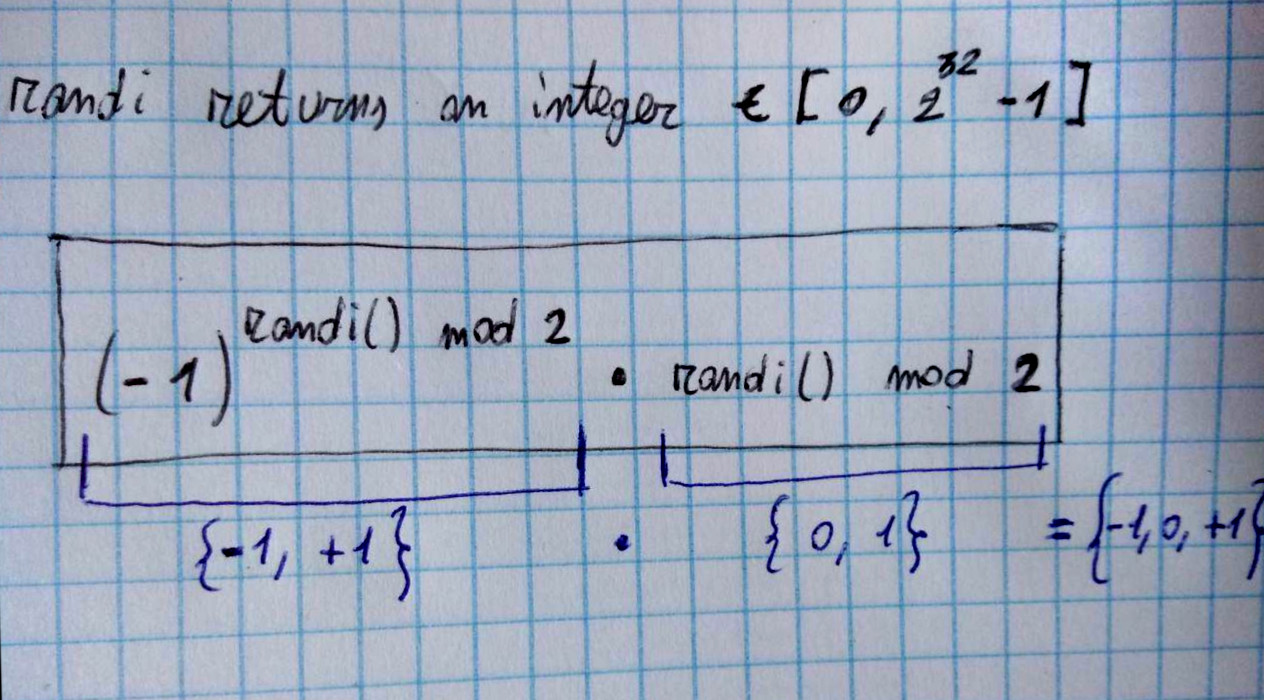 randi returns an integer ∈ [0, 2^32 -1]
(-1)^randi() mod 2 · randi() mod 2
{-1, +1} · {0, 1} = {-1, 0, +1}